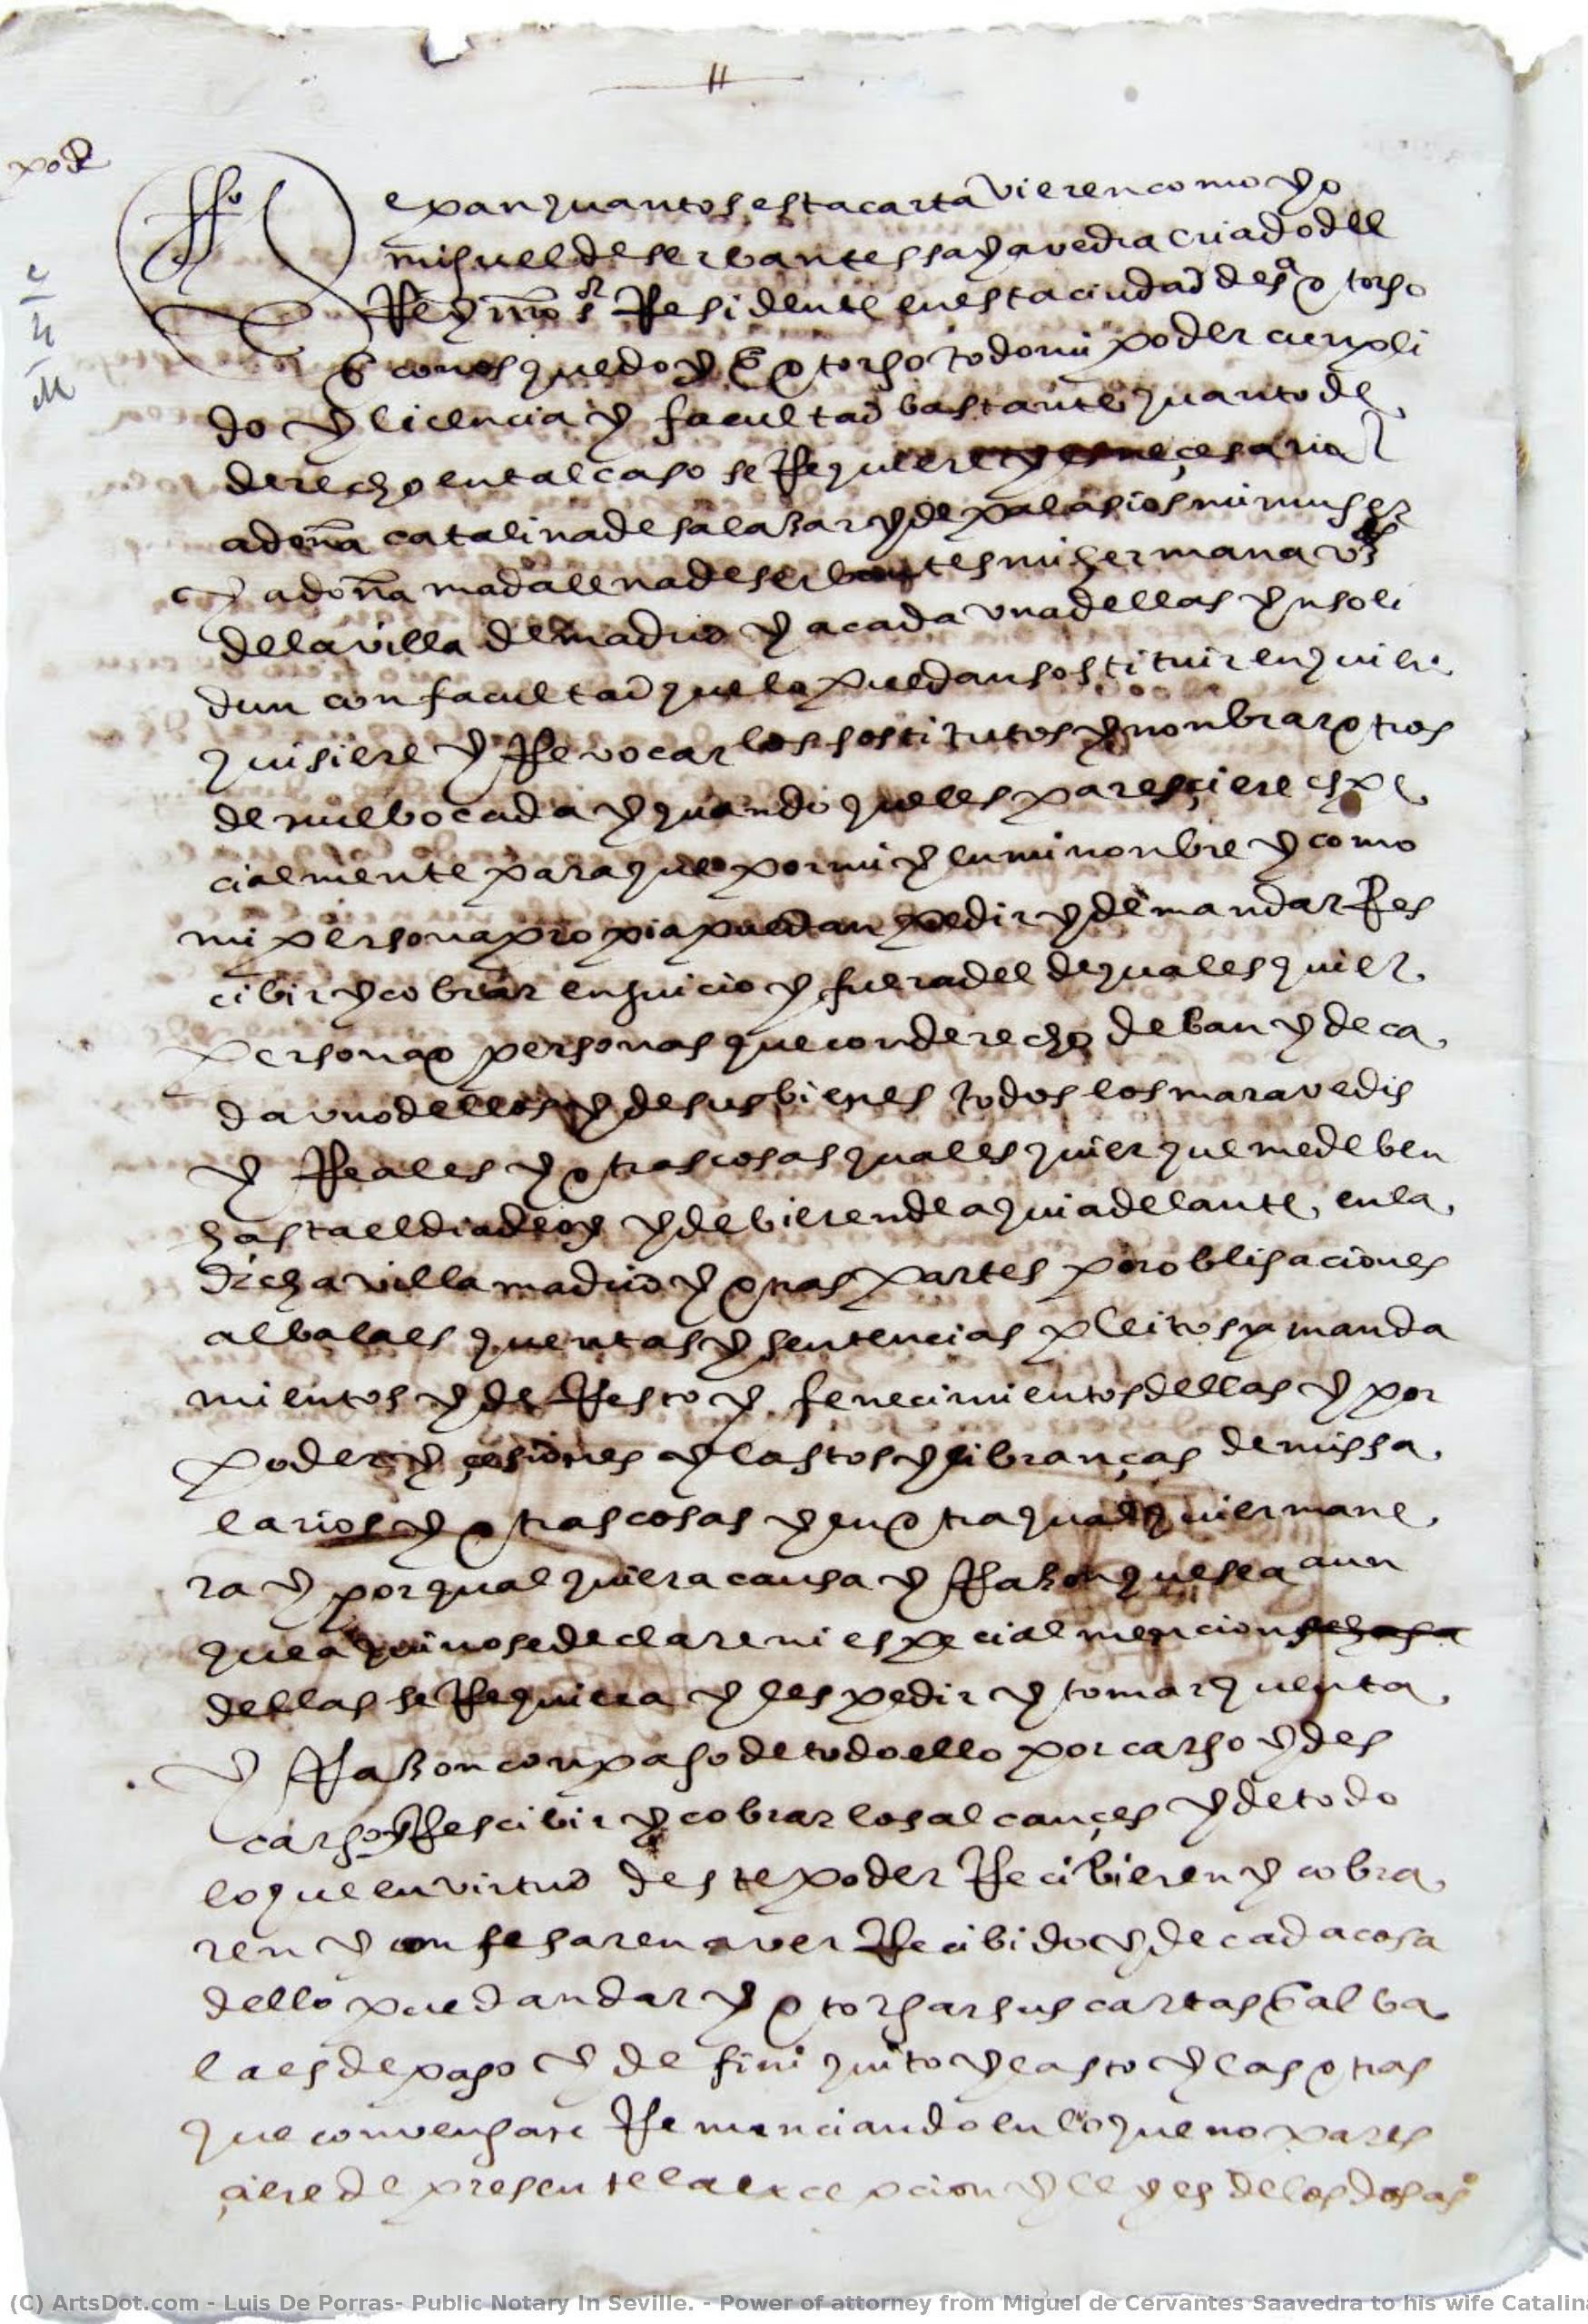 pode
Sepan quantos esta carta vieren como yo
miguel de serbantes sayavedra criado del
Rey nro sr Residente en esta ciudad de sa otorgo
E conosco que doy E otorgo todo mi poder cunpli
do y licencia y facultad bastante quanto de
derecho en tal caso se Requiere y es neçesario
a doña catalina de salazar y de palaçios mi muger
y a doña madalena de serbantes mi hermana vzas
de la villa de madrid y a cada una dellas ynsoli
dun con facultad que lo puedan sostituir en quien
quisiere y Revocar los sostitutos y nonbrar otros
de nuebo cada y quando que les paresçiere espe
cialmente para que por mi y en mi nonbre y como
mi persona propia puedan pedir y demandar Res
cibir y cobrar en juicio y fuera del de qualesquier
persona o personas que con derecho deban y de ca
da uno dellos y de sus bienes todos los maravedis
y Reales y otras cosas qualesquier que me deben
hasta el dia de oy y debieren de aqui adelante en la
dicha villa madrid y otras partes por obligaciones
albalaes quentas y sentencias pleitos y manda
mientos y de Resto y fenecimientos dellas y por
poder y çesiones y lastos y libranças de mis sa
larios y otras cosas y en otra qualquier mane
ra y por qualquiera causa y Razon que sea aun
que aqui no se declare ni especial mencion se haga
dellas se Requiera y les pedir y tomar quenta
y Razon con pago de todo ello por cargo y des
cargo y Rescibir y cobrar los alcançes y de todo
lo que en virtud deste poder Recibieren y cobra
ren y confesaren aver Recibido y de cada cosa
dello puedan dar y otorgar sus cartas E alba
laes de pago y de finiquito y lasto y las otras
que convengan Renunciando en lo que no pares
çiere de presente la exepcion y leyes de los dos as
(C) ArtsDot.com - Luis De Porras- Public Notary In Seville. - Power of attorney from Miguel de Cervantes Saavedra to his wife Catalin